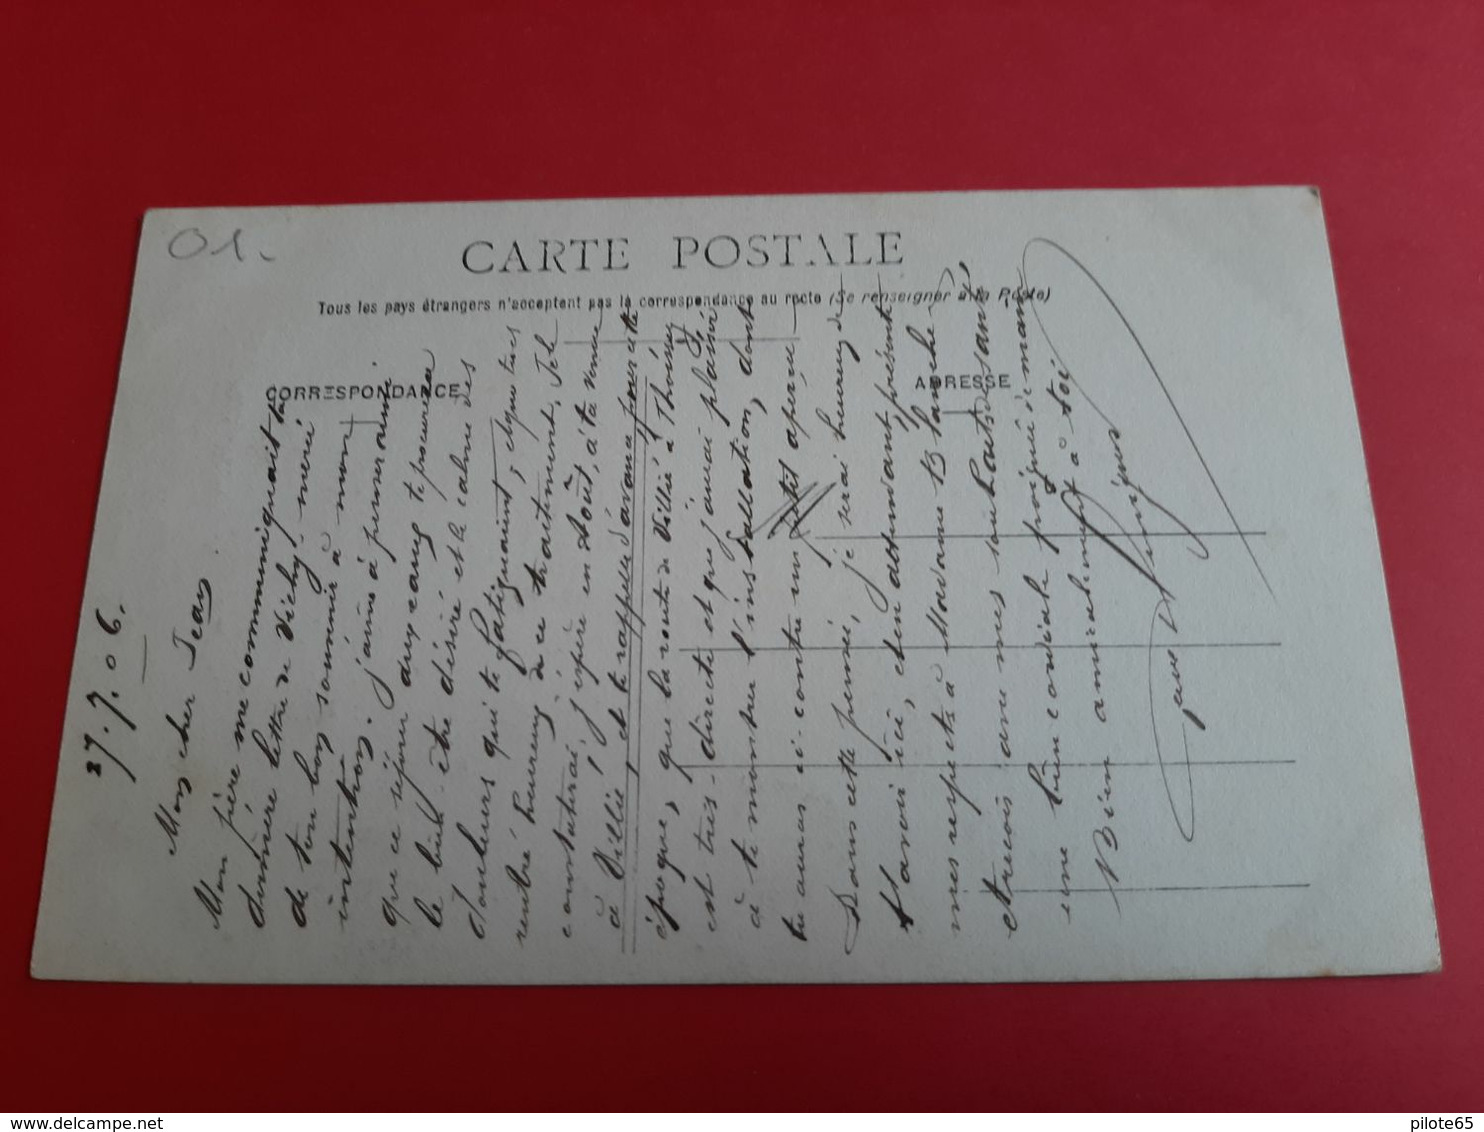 01.
CARTE POSTALE
Tous les pays étrangers n'acceptent pas la correspondance au recto (Se renseigner à la Poste)
CORRESPONDANCE
ADRESSE
27.7.06.
Mon cher Jean,
Mon père me communiquait ta
dernière lettre de Vichy - merci
de ton bon souvenir à mon
intention. J'aime à penser aussi
que ce séjour aux eaux te procurera
le bien-être désiré et le calme des
douleurs qui te fatiguaient, et que tu es
rentré heureux de ce traitement. Je le
constaterai j'espère en Août, à ta venue
à Villié, et te rappelle d'avance pour cette
époque, que la route de Villié à Thoissey
est très-directe et que j'aurai plaisir
à te montrer l'installation, dont
tu auras ci-contre un petit aperçu -
Dans cette pensée, je serai heureux de
t'avoir ici, et en attendant présente
mes respects à Madame Blanche,
et reçois avec mes souhaits de santé,
une bien cordiale poignée de main
Bien amicalement à toi